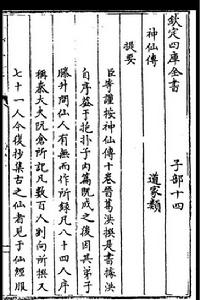 欽定四庫全書 子部十四
神仙傳 道家類
提要
臣等謹按神仙傳十卷晉葛洪撰是書據洪
自序蓋于抱朴子内篇既成之後因其弟子
滕升問仙人有無而作所錄凡八十四人序
稱秦大夫阮倉所記凡數百人劉向所撰又
七十一人今復抄集古之仙者見于仙經服